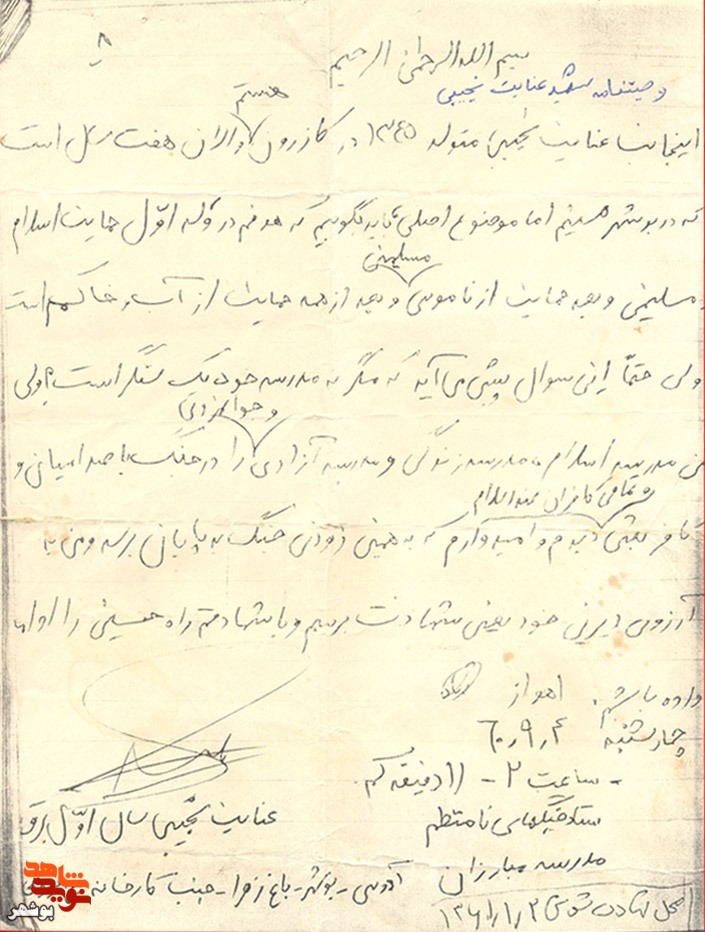 ۸
بسم الله الرحمن الرحیم
وصیتنامه شهید عنایت نجیبی
هستم
اینجانب عنایت نجیبی متولد ۱۳۴۵ در کازرون و الان هفت سال است
که در بوشهر هستم اما موضوع اصلی باید بگویم که هدفم در وله اوّل حمایت اسلام
مسلمین
و مسلمین و بعد حمایت از ناموس و بعد از همه حمایت از آب و خاکم است
ولی حتماً این سوال پیش می‌آید که مگر نه مدرسه خود یک سنگر است؟ ولی
و جوانمردی
من مدرسه اسلام، مدرسه زندگی و مدرسه آزادی را در جنگ با صدامیان و
و تمامی کافران ضد اسلام
کافر بعثی دیدم و امیدوارم که به همین زودی جنگ به پایان برسد و من به
آرزوی دیرین خود یعنی شهادت برسم و با شهادتم راه حسین را ادامه
داده باشم. اهواز
چهارشنبه ۶۰٫۹٫۴
- ساعت ۲ - ۱۱ دقیقه کم
ستاد جنگهای نامنظم
عنایت نجیبی سال اوّل برق
مدرسه مبارزان
آدرس - بوشهر - باغ زهرا - جنب کارخانه
محل شهادت شوش ۱۳۶۱/۱/۲
نوید شاهد
بوشهر